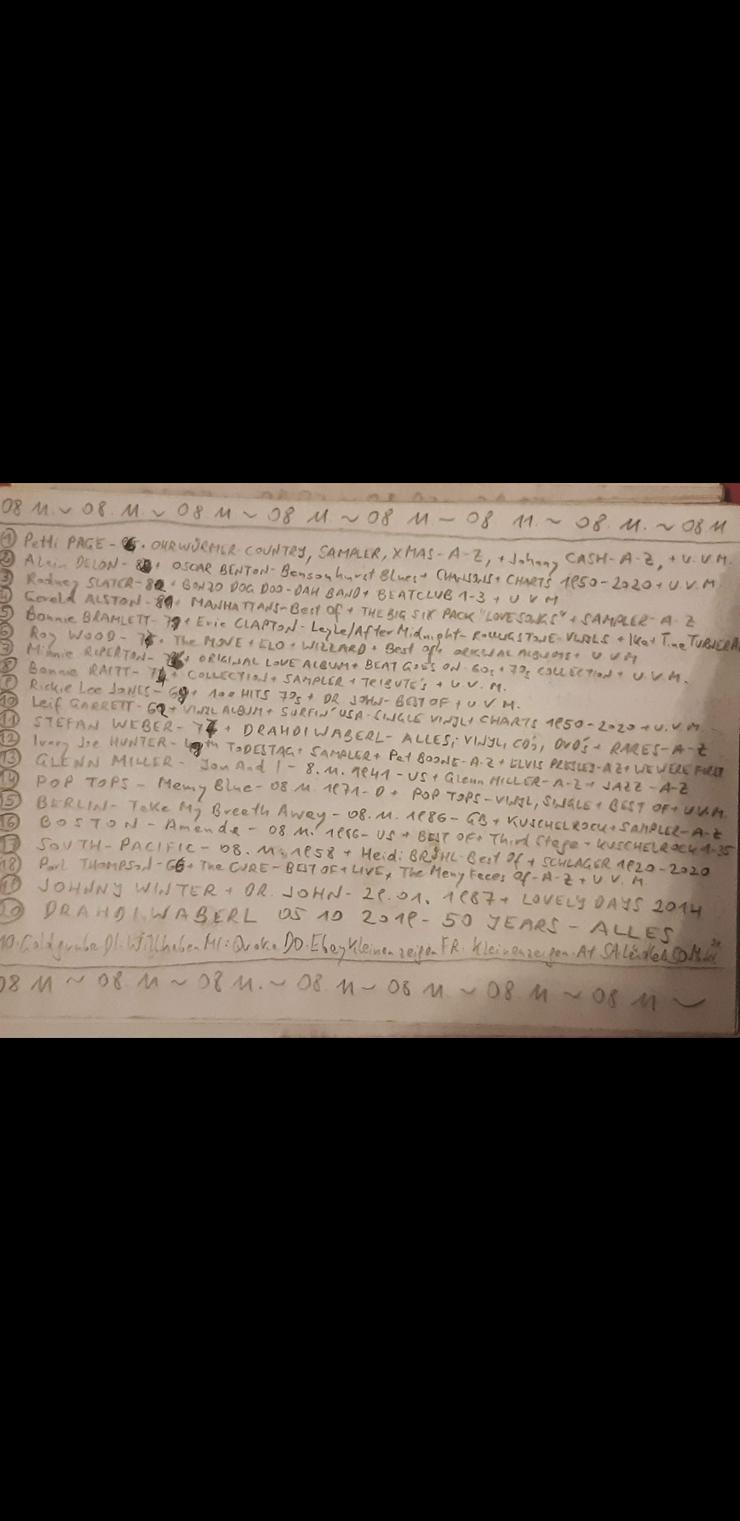 08 11. ~ 08. 11 ~ 08 11 ~ 08 11 ~ 08 11 ~ 08 11. ~ 08. 11. ~ 08 11
① Patti PAGE - + OHRWÜRMER COUNTRY, SAMPLER, XMAS - A-Z, + Johnny CASH - A-Z, + U.V.M.
② Alain DELON - + OSCAR BENTON - Bensonhurst Blues + CHANSONS + CHARTS 1950-2020 + U.V.M
③ Rodney SLATER - 82 + BONZO DOG DOO-DAH BAND + BEATCLUB 1-3 + U V M
④ Gerald ALSTON - + MANHATTANS - Best Of + THE BIG SIX PACK "LOVESONGS" + SAMPLER - A-Z
⑤ Bonnie BRAMLETT - 79 + Eric CLAPTON - Layla/After Midnight - ROLLINGSTONE - VINYLS + Ike + Tina TURNER A
⑥ Roy WOOD - + The MOVE + ELO + WIZZARD + Best Of + ORIGINAL ALBUMS + U V M
⑦ Minnie RIPERTON - + ORIGINAL LOVE ALBUM + BEAT GOES ON - 60s + 70s COLLECTION + U.V.M.
⑧ Bonnie RAITT - + COLLECTION + SAMPLER + TRIBUTE'S + U.V.M.
⑨ Rickie Lee JONES - + 100 HITS 70s + DR JOHN - BEST OF + U V M.
⑩ Leif GARRETT - 62 + VINYL ALBUM + SURFIN' USA - SINGLE VINYL + CHARTS 1950-2020 + U.V.M
⑪ STEFAN WEBER - + DRAHDIWABERL - ALLES, VINYL, CD's, DVD's + RARES - A-Z
⑫ Ivory Joe HUNTER - TODESTAG + SAMPLER + Pat BOONE - A-Z + ELVIS PRESLEY - AZ + WE WERE FIRST
⑬ GLENN MILLER - And I - 8. 11. 1941 - US + Glenn MILLER - A-Z + JAZZ - A-Z
⑭ POP TOPS - Mamy Blue - 08 11. 1971 - D + POP TOPS - VINYL, SINGLE + BEST OF + U.V.M.
⑮ BERLIN - Take My Breath Away - 08. 11. 1986 - GB + KUSCHELROCK + SAMPLER - A-Z
⑯ BOSTON - Amanda - 08 11. 1986 - US + BEST OF + Third Stage + KUSCHELROCK 1-35
⑰ SOUTH-PACIFIC - 08. 11. 1958 + Heidi BRÜHL - Best Of + SCHLAGER 1920-2020
⑱ Porl THOMPSON - + The CURE - BEST OF + LIVE, The Many Faces Of - A-Z + U V. M
⑲ JOHNNY WINTER + DR. JOHN - 29.01. 1987 + LOVELY DAYS 2014
⑳ DRAHDIWABERL 05 10 2019 - 50 YEARS - ALLES
MO. Goldgrube DI. Willhaben MI: Quoka DO. Ebay Kleinanzeigen FR. Kleinanzeigen. At SA.
08 11 ~ 08. 11 ~ 08 11. ~ 08 11 ~ 08 11 ~ 08 11 ~ 08 11 ~